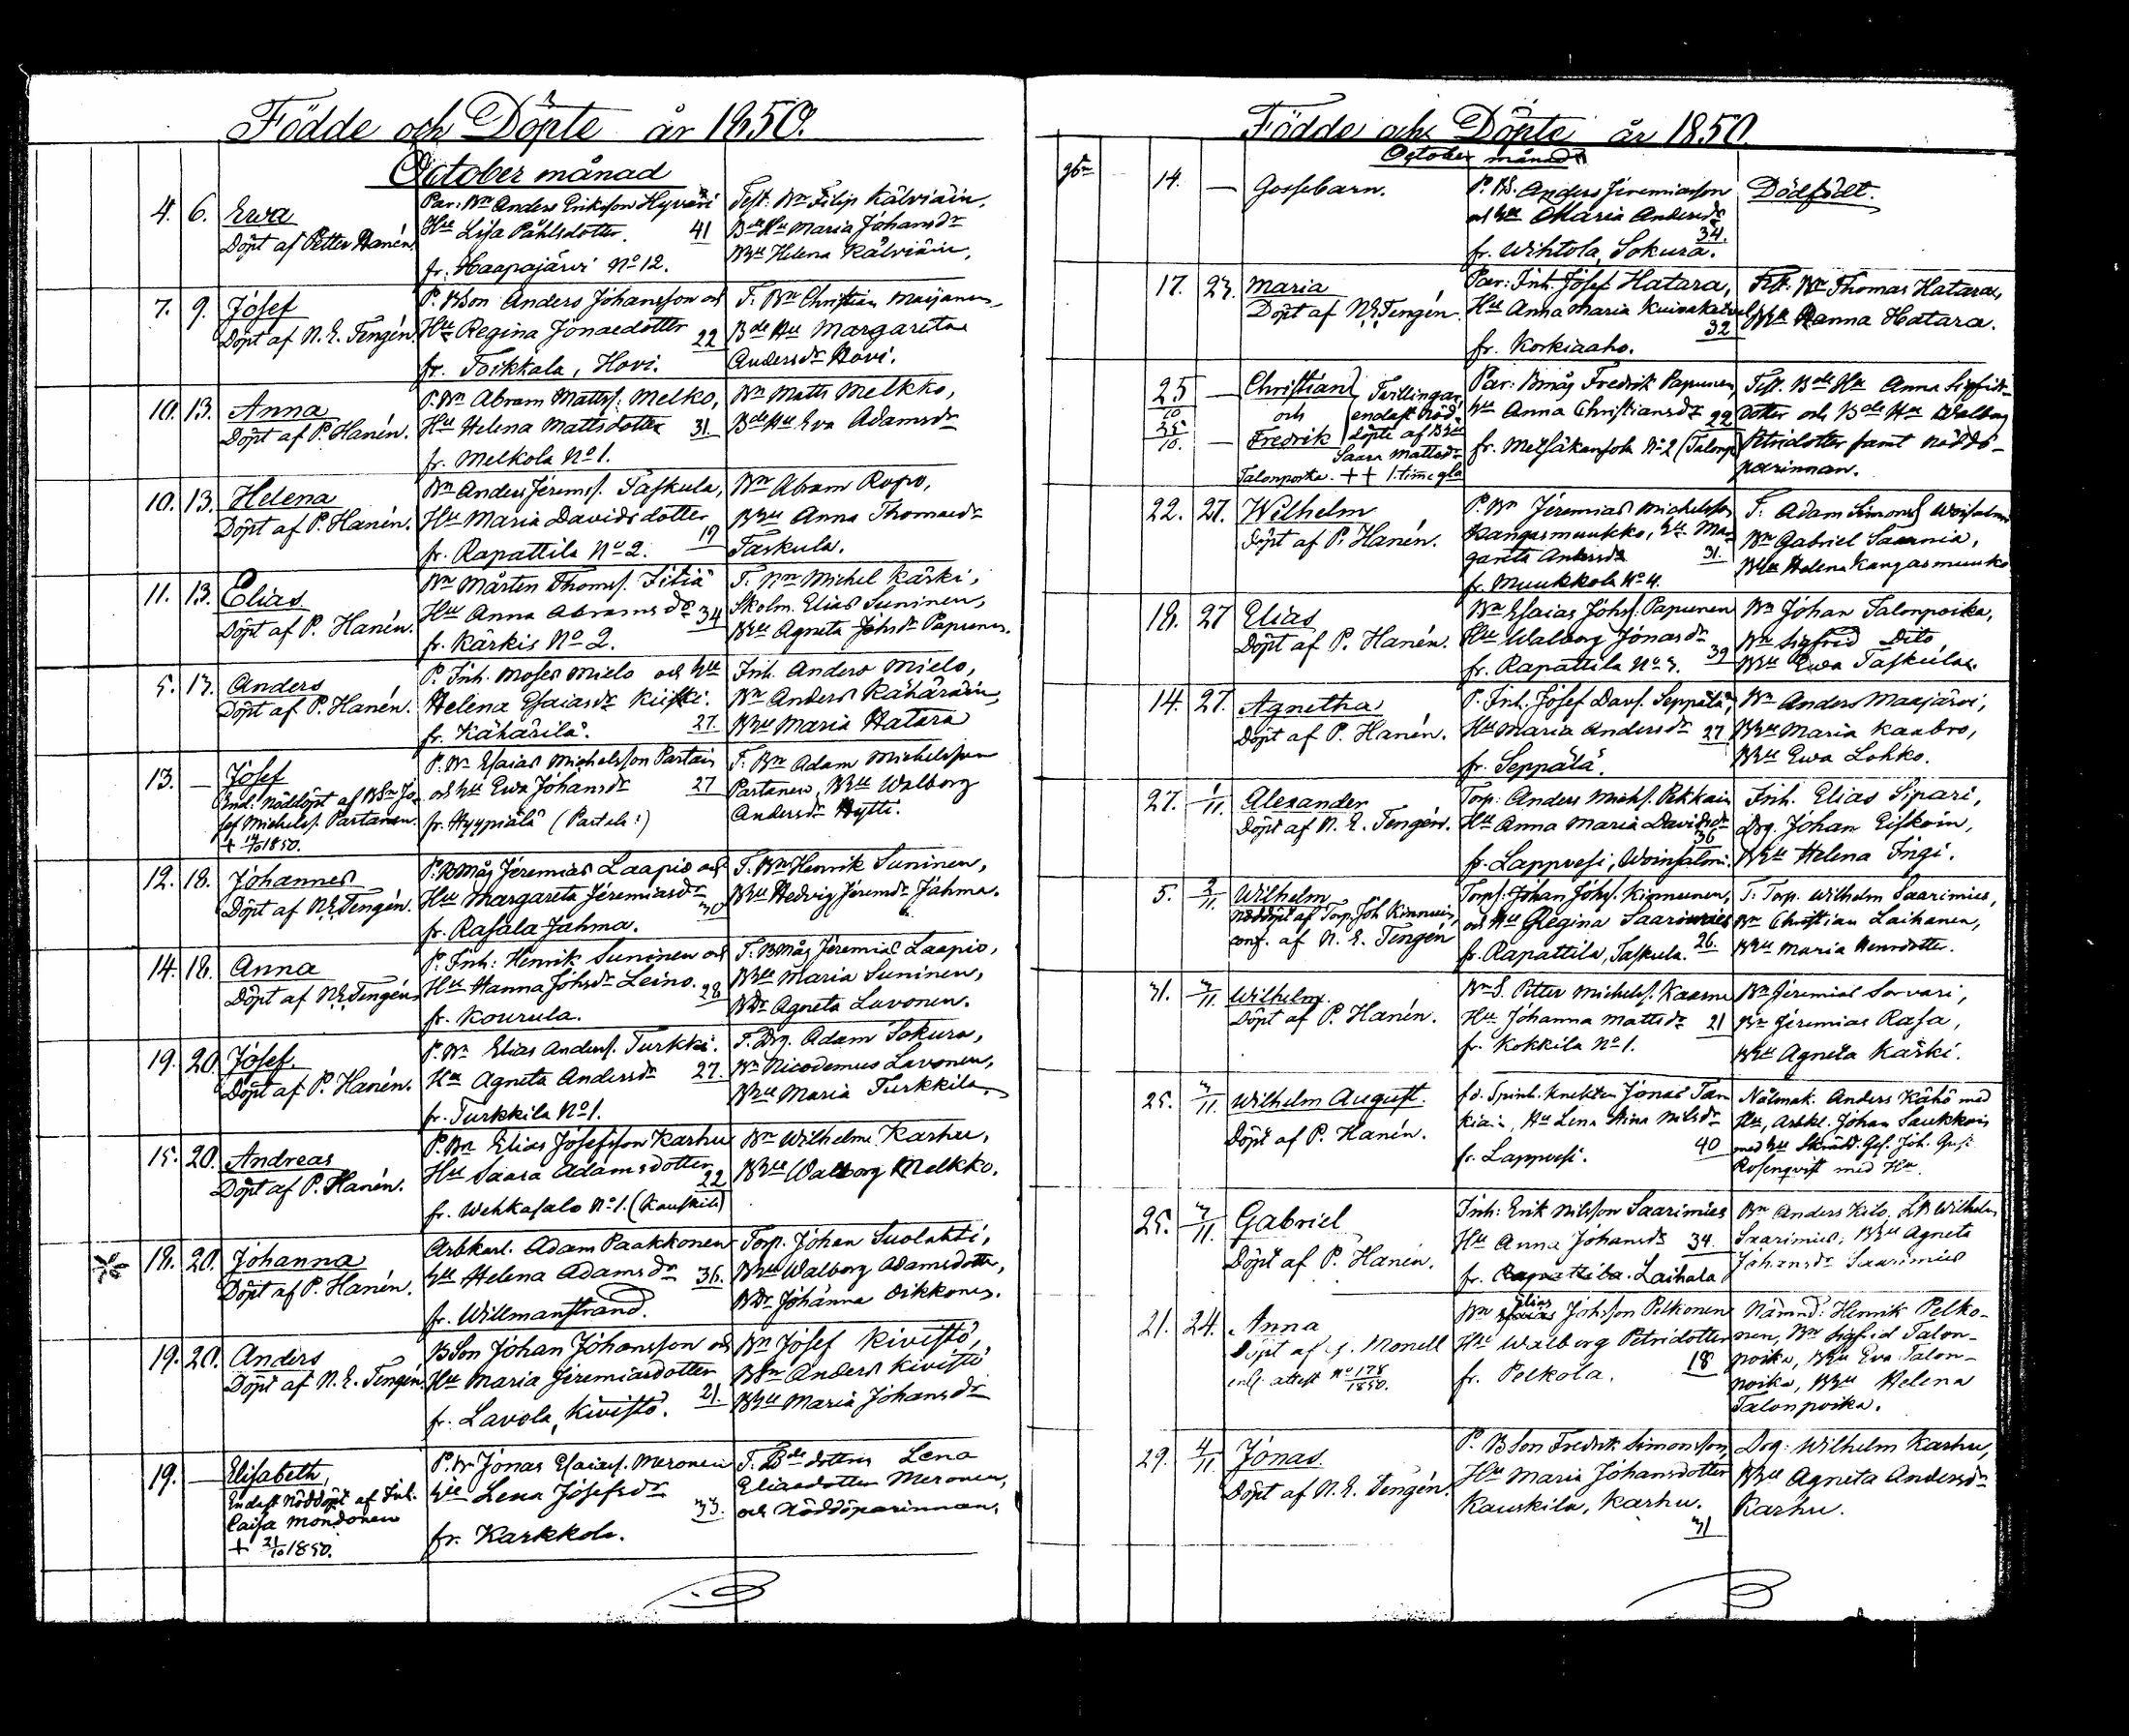 Födde och Döpte år 1850.
October månad
4. 6. Ewa
Döpt af Petter Hanén.
Par: Bn Anders Eriksson Hyväri
Hu Lisa Påhlsdotter. 41
fr. Haapajärvi No 12.
Test. Bn Filip Kälviäin.
Bde Hu Maria Johansdr
BHu Helena Kälviäin.
7. 9. Josef
Döpt af N. E. Tengén.
P. BSon Anders Johansson och
Hu Regina Jonaedotter 22
fr. Toikkala, Hovi.
T. Bn Christian Maijanen
Bde Hu Margareta
Andersdr Hovi.
10. 13. Anna
Döpt af P. Hanén.
P. Bn Abram Mattss: Melko,
Hu Helena Mattsdotter 31.
fr. Melkola No 1.
Bn Matts Melkko,
Bde Hu Eva Adamsdr
10. 13. Helena
Döpt af P. Hanén.
Bn Anders Jeremss. Taskula,
Hu Maria Davidsdotter
fr. Rapattila No 2. 19
Bn Abram Ropo,
BHu Anna Thomasdr
Taskula.
11. 13. Elias
Döpt af P. Hanén.
Bn Mårten Thomss. Iitiä
Hu Anna Abramsdr 34
fr. Kärkis No 2.
T. Bn Michel Kärki,
Skolm. Elias Suninen,
BHu Agneta Johsdr Papunen.
5. 13. Anders
Döpt af P. Hanén.
P. Inh. Moses Mielo och Hu
Helena Esaiasdr Kiiski.
fr. Kähärilä. 27.
Inh. Anders Mielo,
Bn Anders Kähäräin,
BHu Maria Hatara
13. — Josef
End. Nöddöpt af BSn Jo-
sef Michelss. Partanen.
+ 14/10 1850.
P. Bn Esaias Michelsson Partain
och Hu Ewa Johansdr 27
fr. Hyypiälä (Partala:)
T. Bn Adam Michelsson
Partanen, BHu Walborg
Andersdr Hytti.
12. 18. Johannes
Döpt af N.E. Tengén.
P. BMåg Jeremias Laapio och
Hu Margareta Jeremiasdr
fr. Rasala Jahma. 30
T. Bn Henrik Suninen,
BHu Hedvig Jeremdr Jahma.
14. 18. Anna
Döpt af N.E. Tengén
P. Inh: Henrik Suninen och
Hu Hanna Johsdr Leino. 28
fr. Kourula.
T. BMåg Jeremias Laapio,
BHu Maria Suninen,
BDr Agneta Lavonen.
19. 20. Josef
Döpt af P. Hanén.
P. Bn Elias Anderss. Turkki.
Hu Agneta Andersdr 27.
fr. Turkkila No 1.
T. Drg. Adam Sokura,
Bn Nicodemus Lavonen,
BHu Maria Turkkila
15. 20. Andreas
Döpt af P. Hanén.
P. Bn Elias Josefsson Karhu
Hu Saara Adamsdotter 22
fr. Wehkasalo No 1. (Kauskila)
Bn Wilhelm Karhu,
BHu Walborg Melkko.
18. 20. Johanna
Döpt af P. Hanén.
Arbkarl. Adam Paakkonen
Hu Helena Adamsdr 36.
fr. Willmanstrand.
Torp. Johan Suolahti,
BHu Walborg Adamsdotter,
BDr Johanna Oikkonen.
19. 20. Anders
Döpt af N. E. Tengén
BSon Johan Johansson och
Hu Maria Jeremiasdotter
fr. Lavola, Kivistö. 21.
Bn Josef Kivistö,
BSn Anders Kivistö
BHu Maria Johansdr
19. — Elisabeth,
Endast Nöddöpt af Inh.
Caisa Mondonen
+ 21/10 1850.
P. Bn Jonas Esaiass. Meronen
Hu Lena Josefsdr
fr. Karkkola. 33.
T. Bde dotter Lena
Eliasdotter Meronen,
och Nöddöperinnan.
Födde och Döpte år 1850.
October månad
14. — Gossebarn.
P. BS. Anders Jeremiasson
och Hu Maria Andersdr
34.
fr. Wihtola, Sokura.
Dödfödt.
17. 23. Maria
Döpt af N.E. Tengén.
Par: Inh. Josef Hatara,
Hu Anna Maria
32
fr. Korkiaaho.
Test. Bn Thomas Hatara,
BHu Hanna Hatara.
25/10 — Christian
och
25/10. — Fredrik
Tvillingar
endast Nöd-
döpte af BHu
Saara Mattsdr
Talonpoika. ++ 1. time gla
Par: Bmåg Fredrik Papunen,
Hu Anna Christiansdr 22
fr. Metsäkansola No 2 (Talonp
Test. Bde Hu Anna Sigfrids-
dotter och Bde Hu Walborg
Petridotter samt nöddö-
perinnan.
22. 27. Wilhelm
Döpt af P. Hanén.
P. Bn Jeremias Michelsson
Kangasmuukko, Hu Mar-
gareta Andersdr 31.
fr. Muukkola No 4.
T. Adam Simonss
Bn Gabriel Saarnia,
BHu Helena Kangasmuukko
18. 27 Elias
Döpt af P. Hanén.
Bn Esaias Johss. Papunen
Hu Walborg Jonasdr
fr. Rapattila No 3. 39
Bn Johan Talonpoika,
Bn Sigfrid Dito
BHu Ewa Taskula.
14. 27. Agnetha
Döpt af P. Hanén.
P. Inh. Josef Davs. Seppälä,
Hu Maria Andersdr 27
fr. Seppälä.
Bn Anders Maajärvi,
BHu Maria Kaabro,
BHu Ewa Lohko.
27. 1/11. Alexander
Döpt af N. E. Tengén.
Torp: Anders Michs. Pekkain
Hu Anna Maria Davidsdr
36
fr. Lappvesi, Woinsalmi.
Inh. Elias Sipari,
Drg. Johan Eiskoin,
BHu Helena Ingi.
5. 2/11. Wilhelm
Nöddöpt af Torp. Joh Kinnuin,
conf. af N. E. Tengén
Torp. Johan Johs. Kinnunen,
och Hu Regina Saarimies
fr. Rapattila, Taskula. 26.
T: Torp. Wilhelm Saarimies,
Bn Christian Laihanen,
BHu Maria Henrdotter.
31. 3/11. Wilhelm.
Döpt af P. Hanén.
BnS. Petter Michelss. Kaarna
Hu Johanna Mattsdr 21
fr. Kokkila No 1.
Bn Jeremias Sorvari,
Bn Jeremias Rasa,
BHu Agneta Kärki.
25. 3/11. Wilhelm August.
Döpt af P. Hanén.
fd. Spinh. Knekten Jonas Tan-
kiain, Hu Lena Stina Nilsdr
fr. Lappvesi. 40
Nålmak. Anders Kähö med
Hu, Arbkl. Johan Saukkoin
med Hu Skrädd. Ges. Joh. Gust
Rosenqvist med Hu.
25. 3/11. Gabriel
Döpt af P. Hanén.
Inh: Erik Nilsson Saarimies
Hu Anna Johansdr 34.
fr. Rapattila. Laihala
Bn Anders Kilo, LB Wilhelm
Saarimies, BHu Agneta
Johansdr Saarimies
21. 24. Anna
Döpt af J. Monell
enl. attest No 178/1850.
Bn Elias Johsson Pelkonen
Hu Walborg Petridotter
fr. Pelkola. 18
Nämnd: Henrik Pelko-
nen, Bn Sigfrid Talon-
poika, BHu Eva Talon-
poika, BHu Helena
Talonpoika.
29. 4/11. Jonas.
Döpt af N. E. Tengén.
P. BSon Fredrik Simonsson,
Hu Maria Johansdotter
Kauskila, Karhu.
31
Drg: Wilhelm Karhu,
BHu Agneta Andersdr
Karhu.